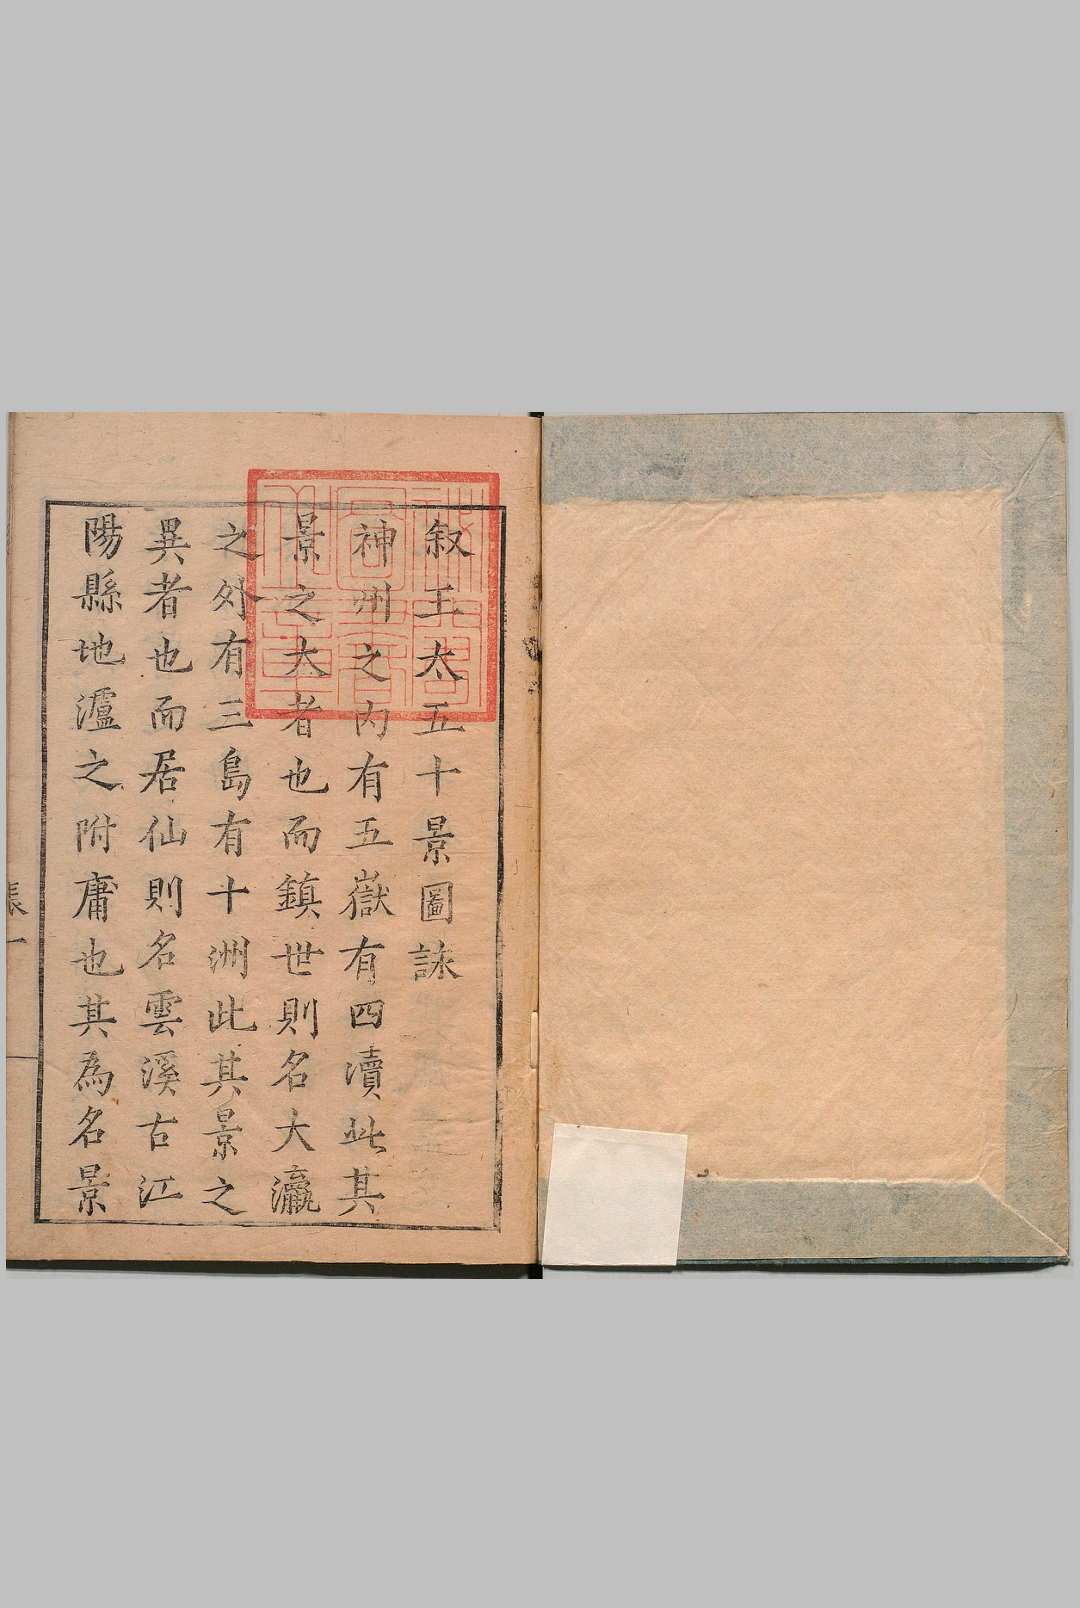 叙王太五十景圖詠
神州之内有五嶽有四瀆此其
景之大者也而鎮世則名大瀛
之外有三島有十洲此其景之
異者也而居仙則名雲溪古江
陽縣地瀘之附庸也其為名景